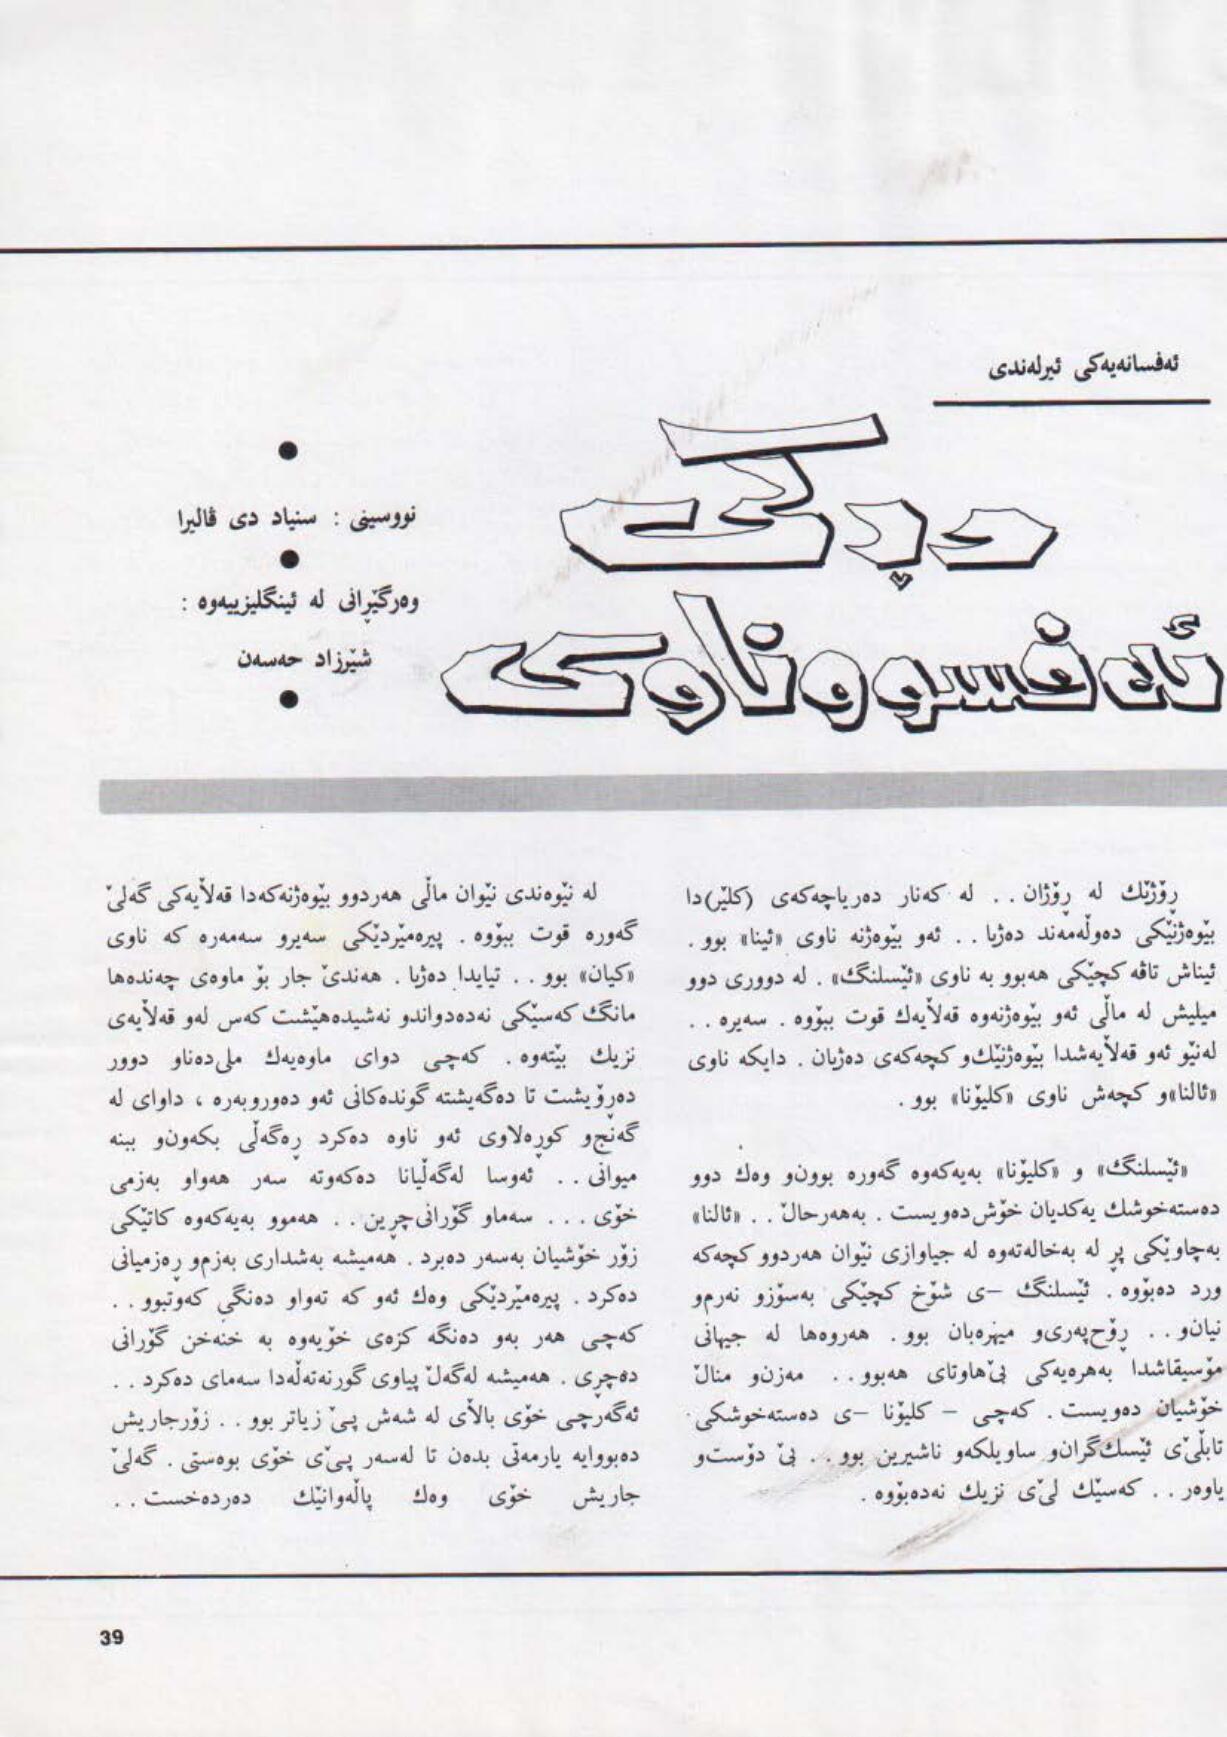 ئەفسانەیەکی ئیرلەندی
دڕکی
ئەفسووناوی
نووسینی : سنیاد دی ڤالیرا
وەرگێڕانی لە ئینگلیزییەوە :
شێرزاد حەسەن
رۆژێك لە ڕۆژان . . لە کەنار دەریاچەکەی (کلێر)دا
بێوەژنێکی دەوڵەمەند دەژیا . . ئەو بێوەژنە ناوی «ئینا» بوو .
ئیناش تاقە کچێکی هەبوو بە ناوی «ئێسلنگ» . لە دووری دوو
میلیش لە ماڵی ئەو بێوەژنەوە قەڵایەك قوت ببۆوە . سەیرە . .
لەنێو ئەو قەڵایەشدا بێوەژنێك‌و کچەکەی دەژیان . دایکە ناوی
«ئالنا»و کچەش ناوی «کلیۆنا» بوو .
«ئێسلنگ» و «کلیۆنا» بەیەکەوە گەورە بوون‌و وەك دوو
دەستەخوشك یەکدیان خۆش دەویست . بەهەرحاڵ . . «ئالنا»
بەچاوێکی پڕ لە بەخالەتەوە لە جیاوازی نێوان هەردوو کچەکە
ورد دەبۆوە . ئێسلنگ –ی شۆخ کچێکی بەسۆزو نەرم‌و
نیان‌و . . ڕۆح‌پەری‌و میهرەبان بوو . هەروەها لە جیهانی
مۆسیقاشدا بەهرەیەکی بێ‌هاوتای هەبوو . . مەزن‌و مناڵ
خۆشیان دەویست . کەچی – کلیۆنا –ی دەستەخوشکی
تابڵێی ئێسك‌گران‌و ساویلکەو ناشیرین بوو . . بێ دۆست‌و
یاوەر . . کەسێك لێی نزیك نەدەبۆوە .
لە نێوەندی نێوان ماڵی هەردوو بێوەژنەکەدا قەڵایەکی گەلێ
گەورە قوت ببۆوە . پیرەمێردێکی سەیرو سەمەرە کە ناوی
«کیان» بوو . . تیایدا دەژیا . هەندێ جار بۆ ماوەی چەندەها
مانگ کەسێکی نەدەدواندو نەشیدەهێشت کەس لەو قەڵایەی
نزیك بێتەوە . کەچی دوای ماوەیەك ملی‌دەناو دوور
دەڕۆیشت تا دەگەیشتە گوندەکانی ئەو دەوروبەرە ، داوای لە
گەنج‌و کوڕەلاوی ئەو ناوە دەکرد ڕەگەڵی بکەون‌و ببنە
میوانی . . ئەوسا لەگەڵیانا دەکەوتە سەر هەواو بەزمی
خۆی . . . سەماو گۆرانی‌چڕین . . هەموو بەیەکەوە کاتێکی
زۆر خۆشیان بەسەر دەبرد . هەمیشە بەشداری بەزم‌و ڕەزمیانی
دەکرد . پیرەمێردێکی وەك ئەو کە تەواو دەنگی کەوتبوو . .
کەچی هەر بەو دەنگە کزەی خۆیەوە بە خنەخن گۆرانی
دەچڕی . هەمیشە لەگەڵ پیاوی گورنەتەڵەدا سەمای دەکرد . .
ئەگەرچی خۆی باڵای لە شەش پێ زیاتر بوو . . زۆرجاریش
دەبووایە یارمەتی بدەن تا لەسەر پێی خۆی بوەستی . گەلێ
جاریش خۆی وەك پاڵەوانێك دەردەخست . .
39